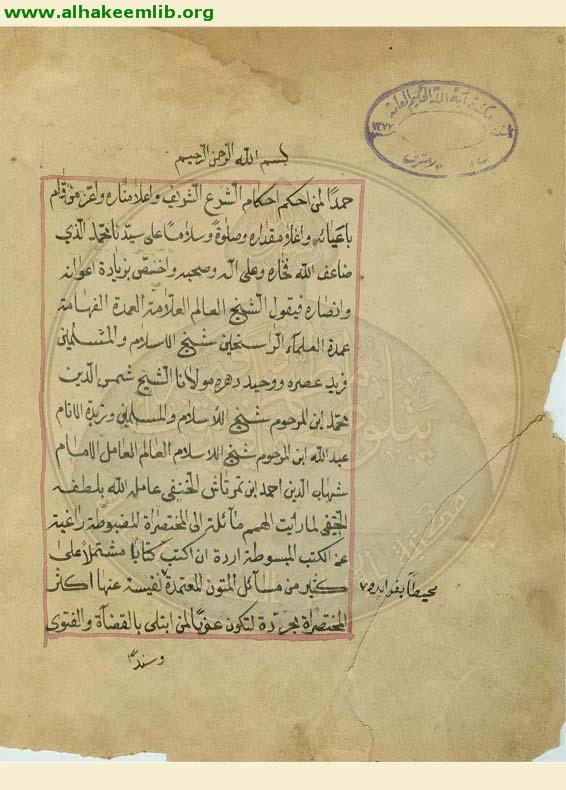 www.alhakeemlib.org
مكتبة آية الله الحكيم العامة
بسم الله الرحمن الرحيم
حمدًا لمن احكم احكام الشرع الشريف واعلا مناره واعز من قام
باعبائه واعلا مقداره وصلوةً وسلامًا على سيّدنا محمد الذي
ضاعف الله فخاره وعلى اله وصحبه واختصّ بزيادة اعوانه
وانصاره فيقول الشيخ العالم العلامة العمدة الفهامة
عمدة العلماء الراسخين شيخ الاسلام والمسلمين
فريد عصره ووحيد دهره مولانا الشيخ شمس الدين
محمد ابن المرحوم شيخ الاسلام والمسلمين وزبدة الانام
عبد الله ابن المرحوم شيخ الاسلام العالم العامل الامام
شهاب الدين احمد ابن تمرتاش الحنفي عامله الله بلطفه
الخفي لما رايت الهمم مائلة الى المختصراة المضبوطة راغبة
عن الكتب المبسوطة اردة ان اكتب كتابا مشتملا على
كثير من مسائل المتون المعتمدة نفيسة عنها اكثر
محيطاً بفوايده
المختصراة مجردة لتكون عونًا لمن ابتلى بالقضآة والفتوى
وسندا